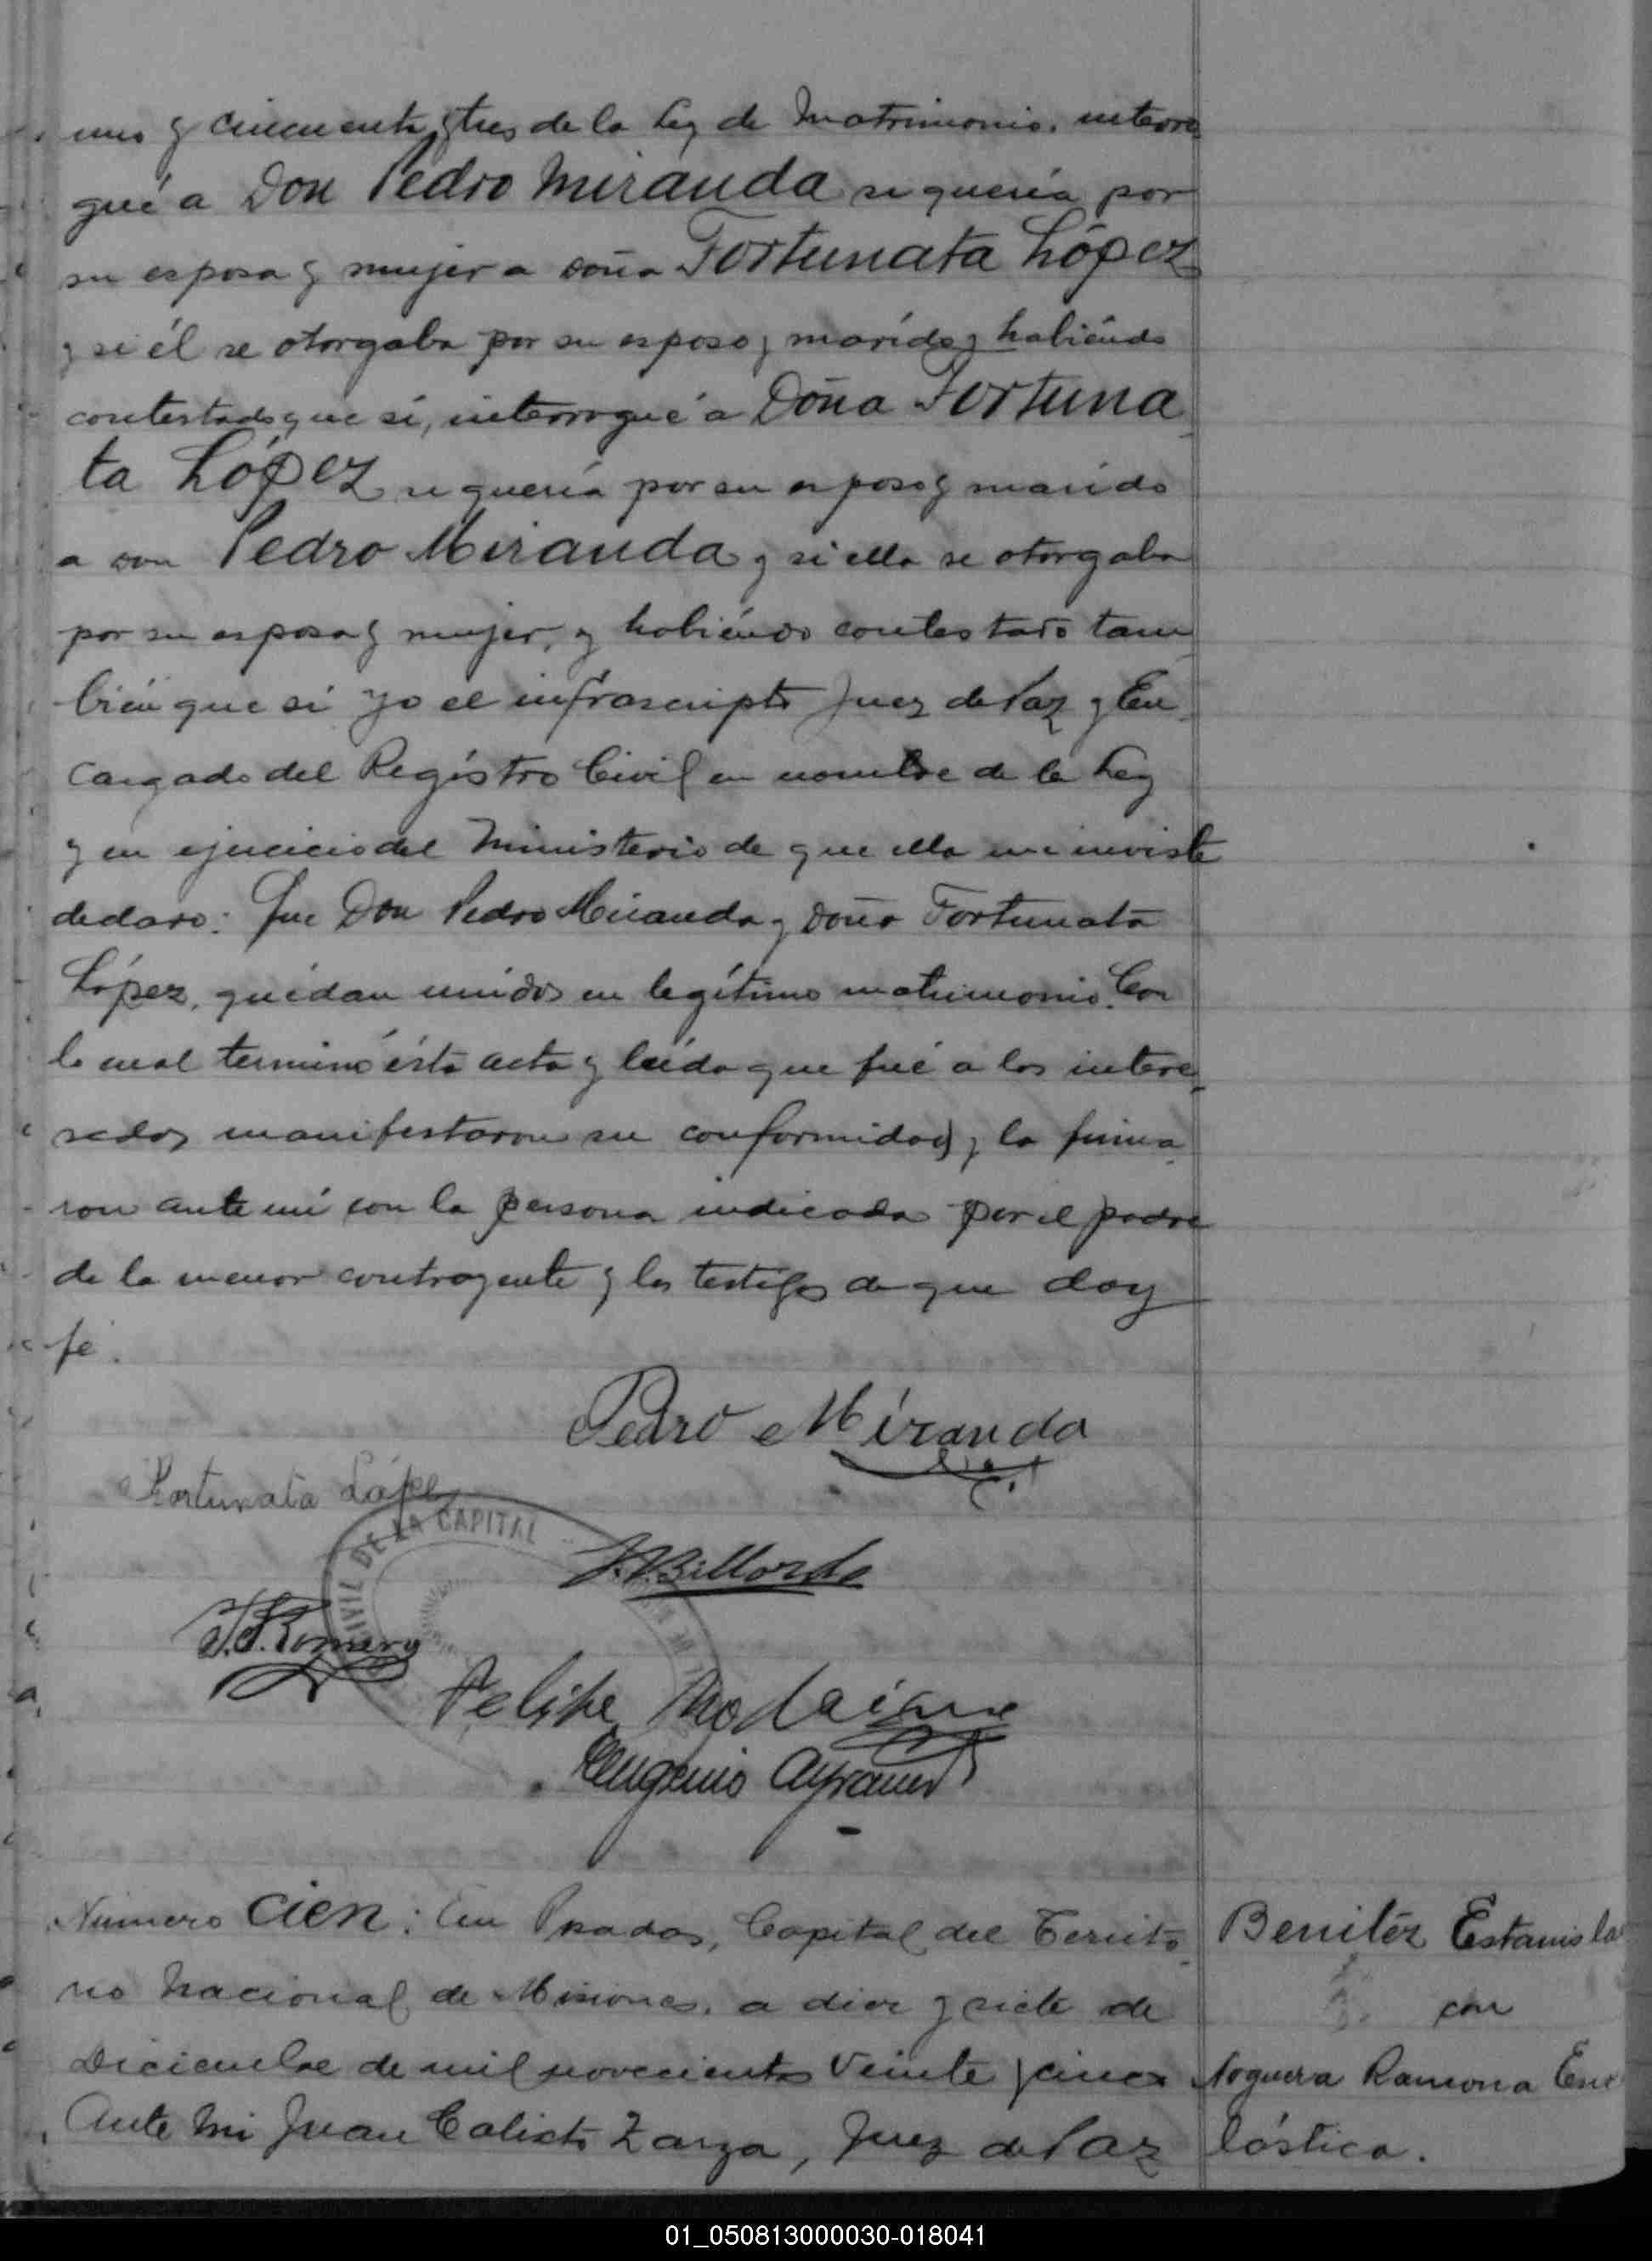 uno y cincuenta y tres de la Ley de Matrimonio, interro
gué a Don Pedro Miranda si quería por
su esposa y mujer a doña Fortunata López
y si él se otorgaba por su esposo y marido y habiéndo
contestado que sí, interrogué a Doña Fortuna
ta López si quería por su esposo y marido
a don Pedro Miranda y si ella se otorgaba
por su esposa y mujer, y habiéndo contestado tam
bién que si yo el infrascripto Juez de Paz y En
cargado del Registro Civil en nombre de la Ley
y en ejercicio del Ministerio de que ella me inviste
declaro: Que Don Pedro Miranda y doña Fortunata
López, quedan unidos en legítimo matrimonio. Con
lo cual terminó ésta acta y leída que fué a los intere
sados manifestaron su conformidad y la firma
ron ante mí con la persona indicada por el padre
de la menor contrayente y los testigos de que doy
fé.
Pedro Miranda
Fortunata López
DE LA CAPITAL
CIVIL
J. Billordo
J. S. Romero
Felipe
Eugenio
Número cien: En Posadas, Capital del Territo
rio Nacional de Misiones, a diez y siete de
Diciembre de mil novecientos veinte y cinco
Ante Mi Juan Calixto Zarza, Juez de Paz
Benitéz Estanislao
con
Noguera Ramona Esco
lástica.
01_050813000030-018041